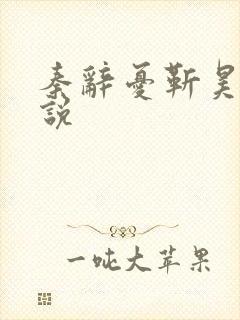 秦辭憂靳昊
說
一吨大苹果